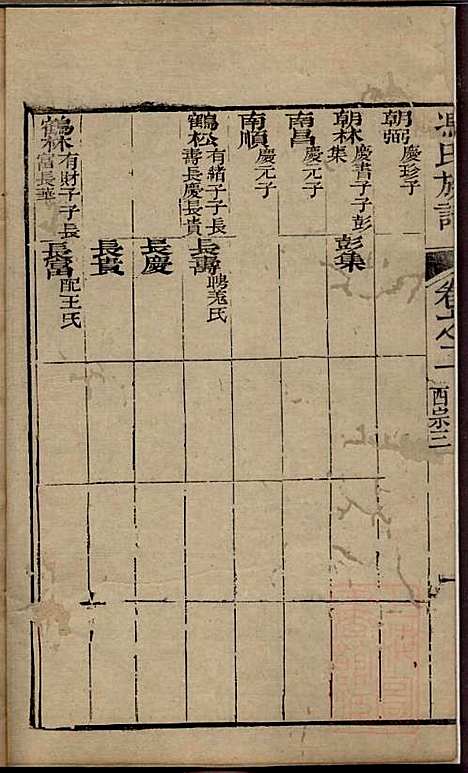 馮氏族譜
卷之二 西宗三
朝弼 慶珍子
朝林 慶書子子彭集
彭集
南昌 慶元子
南順 慶元子
鶴松 有緒子子長壽長慶長貴
長壽 聘羗氏
長慶
長貴
鶴林 有財子子長富長華
長富 配王氏